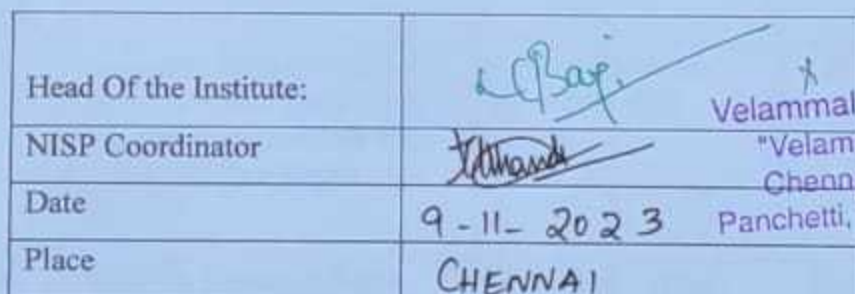 Head Of the Institute:
Velammal
NISP Coordinator
"Velam
Chenn
Date
9-11-2023
Panchetti,
Place
CHENNAI